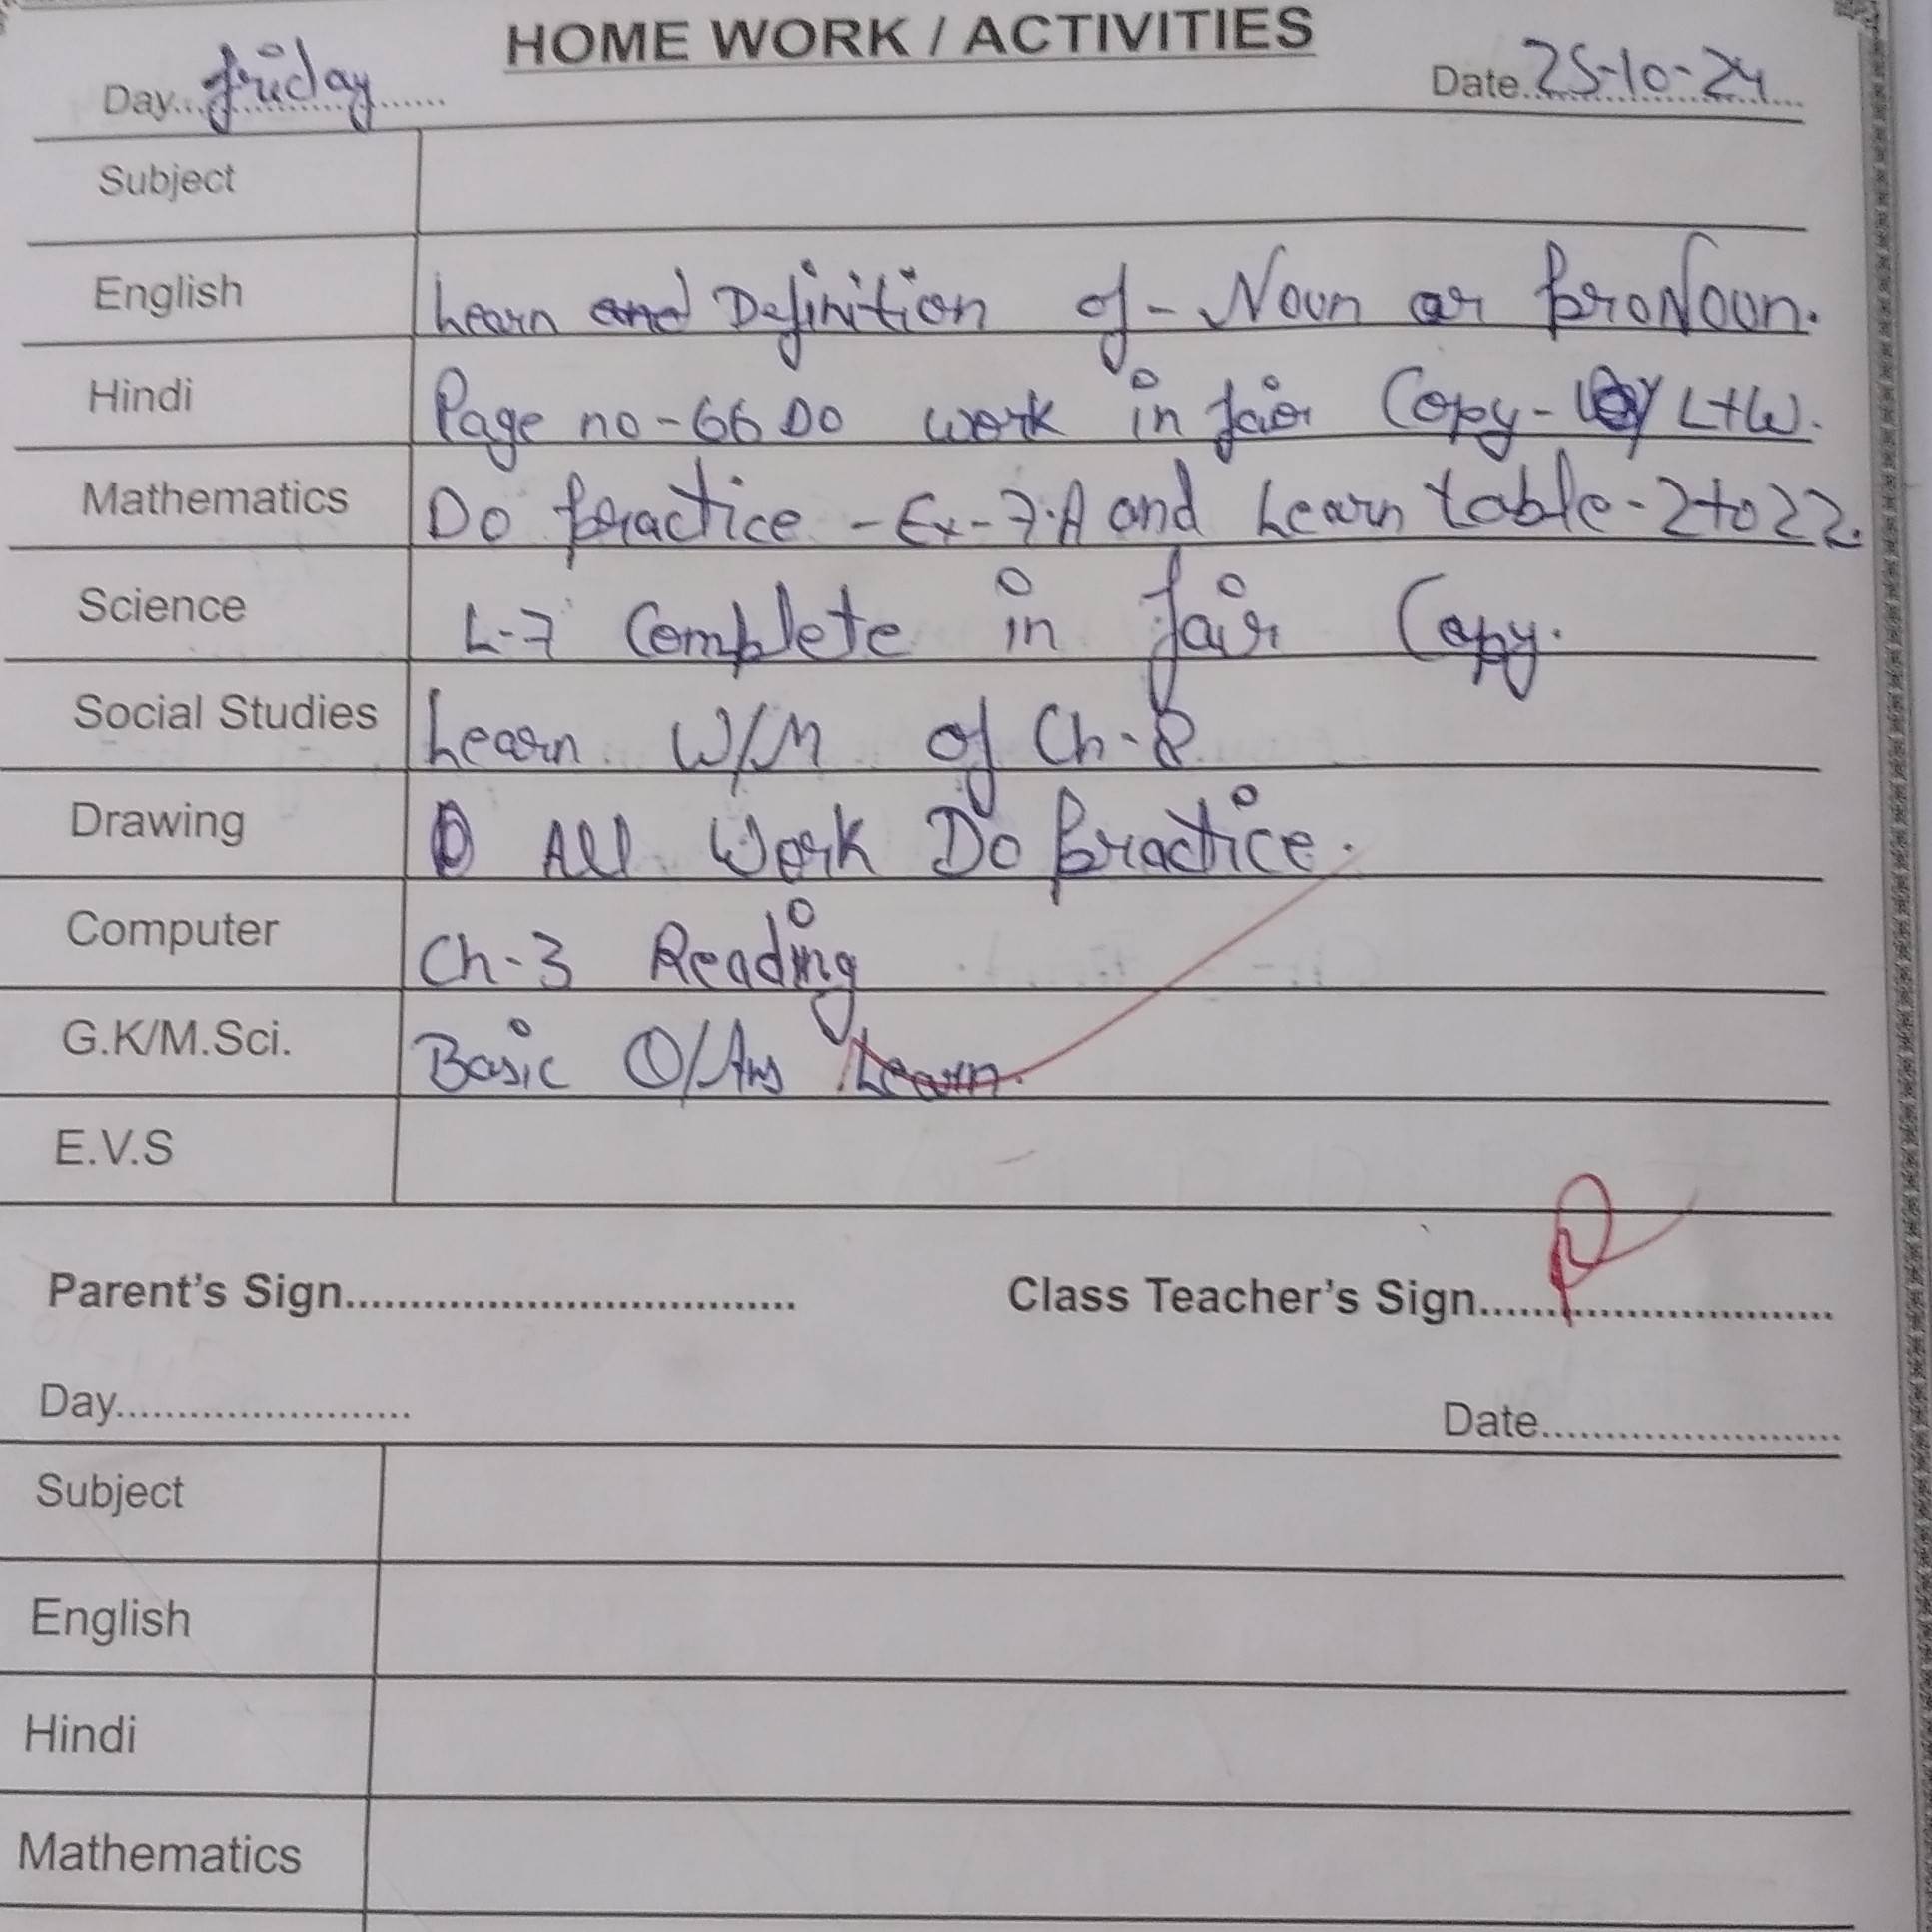 HOME WORK / ACTIVITIES
Day...friday...... Date.25-10-24...
Subject
English Learn and Definition of - Noun or ProNoun.
Hindi Page no-66 Do work in fair Copy- L+W.
Mathematics Do Practice - Ex-7.A and Learn table-2 to 22.
Science L-7 Complete in fair Copy.
Social Studies Learn W/M of Ch-8
Drawing All Work Do Practice.
Computer Ch-3 Reading
G.K/M.Sci. Basic Q/Ans Learn.
E.V.S
Parent's Sign................................... Class Teacher's Sign.................................
Day........................ Date.........................
Subject
English
Hindi
Mathematics